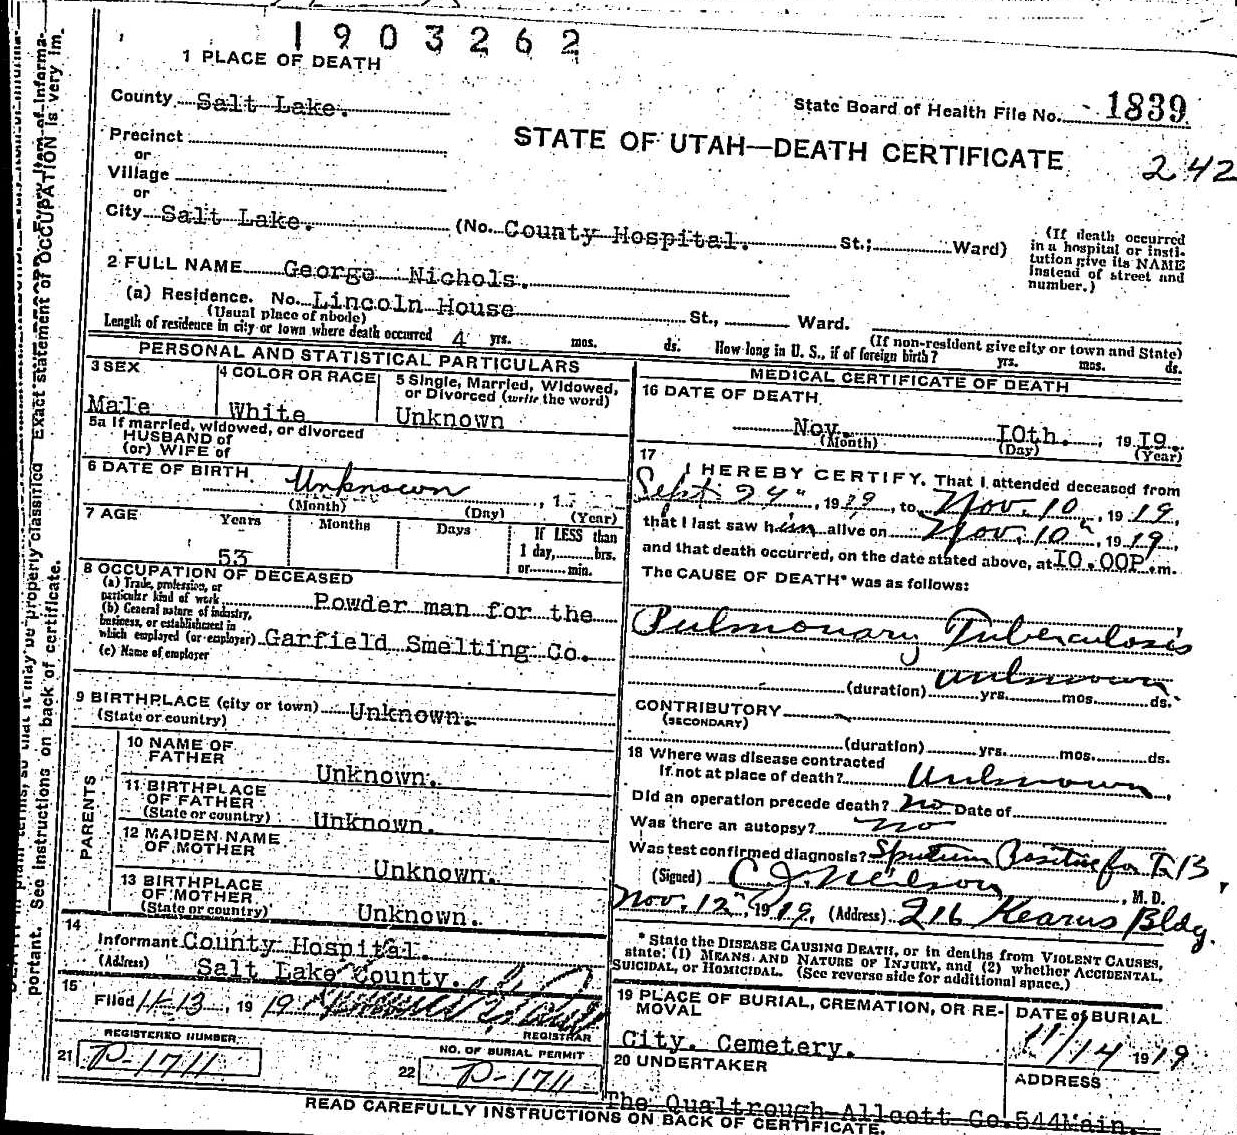 1903262
1 PLACE OF DEATH
County Salt Lake.
State Board of Health File No. 1839
Precinct
or
STATE OF UTAH—DEATH CERTIFICATE
242
Village
or
City Salt Lake. (No. County Hospital. St.; Ward)
(If death occurred in a hospital or insti-
tution give its NAME
instead of street and
number.)
2 FULL NAME George Nichols.
(a) Residence. No. Lincoln House St., Ward.
(Usual place of abode)
(If non-resident give city or town and State)
Length of residence in city or town where death occurred 4 yrs. mos. ds. How long in U. S., if of foreign birth? yrs. mos. ds.
PERSONAL AND STATISTICAL PARTICULARS
3 SEX
Male
4 COLOR OR RACE
White
5 Single, Married, Widowed,
or Divorced (write the word)
Unknown
5a If married, widowed, or divorced
HUSBAND of
(or) WIFE of
6 DATE OF BIRTH
Unknown , 1
(Month) (Day) (Year)
7 AGE
Years Months Days
53
If LESS than
1 day, hrs.
or min.
8 OCCUPATION OF DECEASED
(a) Trade, profession, or
particular kind of work Powder man for the
(b) General nature of industry,
business, or establishment in
which employed (or employer) Garfield Smelting Co.
(c) Name of employer
9 BIRTHPLACE (city or town) Unknown.
(State or country)
PARENTS
10 NAME OF
FATHER Unknown.
11 BIRTHPLACE
OF FATHER
(State or country) Unknown.
12 MAIDEN NAME
OF MOTHER Unknown.
13 BIRTHPLACE
OF MOTHER
(State or country) Unknown.
14
Informant County Hospital.
(Address) Salt Lake County.
15
Filed 11-13, 1919
REGISTRAR
REGISTERED NUMBER
21 P-1711
NO. OF BURIAL PERMIT
22 P-1711
MEDICAL CERTIFICATE OF DEATH
16 DATE OF DEATH
Nov. I0th. , 19I9.
(Month) (Day) (Year)
17
I HEREBY CERTIFY, That I attended deceased from
Sept 24", 1919, to Nov. 10, 1919,
that I last saw him alive on Nov. 10th, 1919,
and that death occurred, on the date stated above, at I0.00P.m.
The CAUSE OF DEATH* was as follows:
Pulmonary Tuberculosis
unknown
(duration) yrs. mos. ds.
CONTRIBUTORY
(SECONDARY)
(duration) yrs. mos. ds.
18 Where was disease contracted
If not at place of death? Unknown
Did an operation precede death? no Date of
Was there an autopsy? no
Was test confirmed diagnosis? Sputum Positive for T.B.
(Signed) C. J. Neilson, M. D.
Nov. 12", 1919, (Address) 216 Kearns Bldg.
* State the DISEASE CAUSING DEATH, or in deaths from VIOLENT CAUSES,
state: (1) MEANS AND NATURE OF INJURY, and (2) whether ACCIDENTAL,
SUICIDAL, or HOMICIDAL. (See reverse side for additional space.)
19 PLACE OF BURIAL, CREMATION, OR RE-
MOVAL
City. Cemetery.
DATE of BURIAL
11/14 1919
20 UNDERTAKER
The Qualtrough-Allcott Co.
ADDRESS
544Main.
READ CAREFULLY INSTRUCTIONS ON BACK OF CERTIFICATE.
so that it may be properly classified. Exact statement of OCCUPATION is very im-
portant. See instructions on back of certificate.